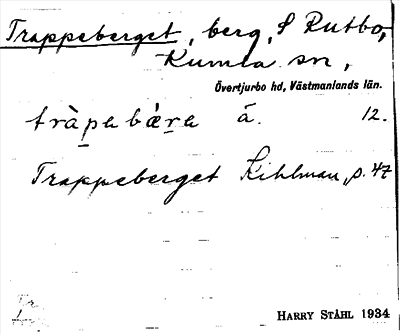 Trappeberget, berg, S Rutbo,
Kumla sn,
Övertjurbo hd, Västmanlands län.
tràpabæ̀ra á. 12.
Trappeberget Kihlman, s. 47
HARRY STÅHL 1934